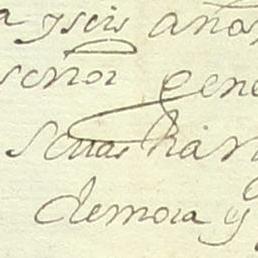 a yseis años
señor gene
se has han
demora y